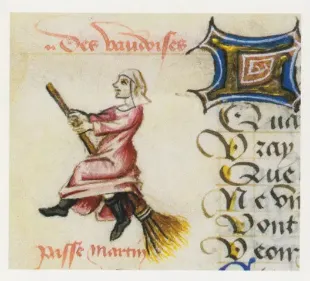 Des vaudoises
Qua
Vray
Que
Ne vn
Vont
passe Martin